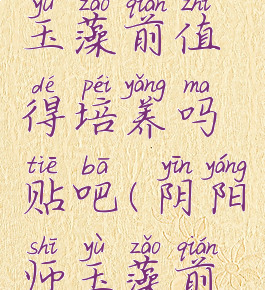 yù zǎo qián zhí
玉藻前值
dé péi yǎng ma
得培养吗
tiē bā yīn yáng
贴吧(阴阳
shī yù zǎo qián
师玉藻前